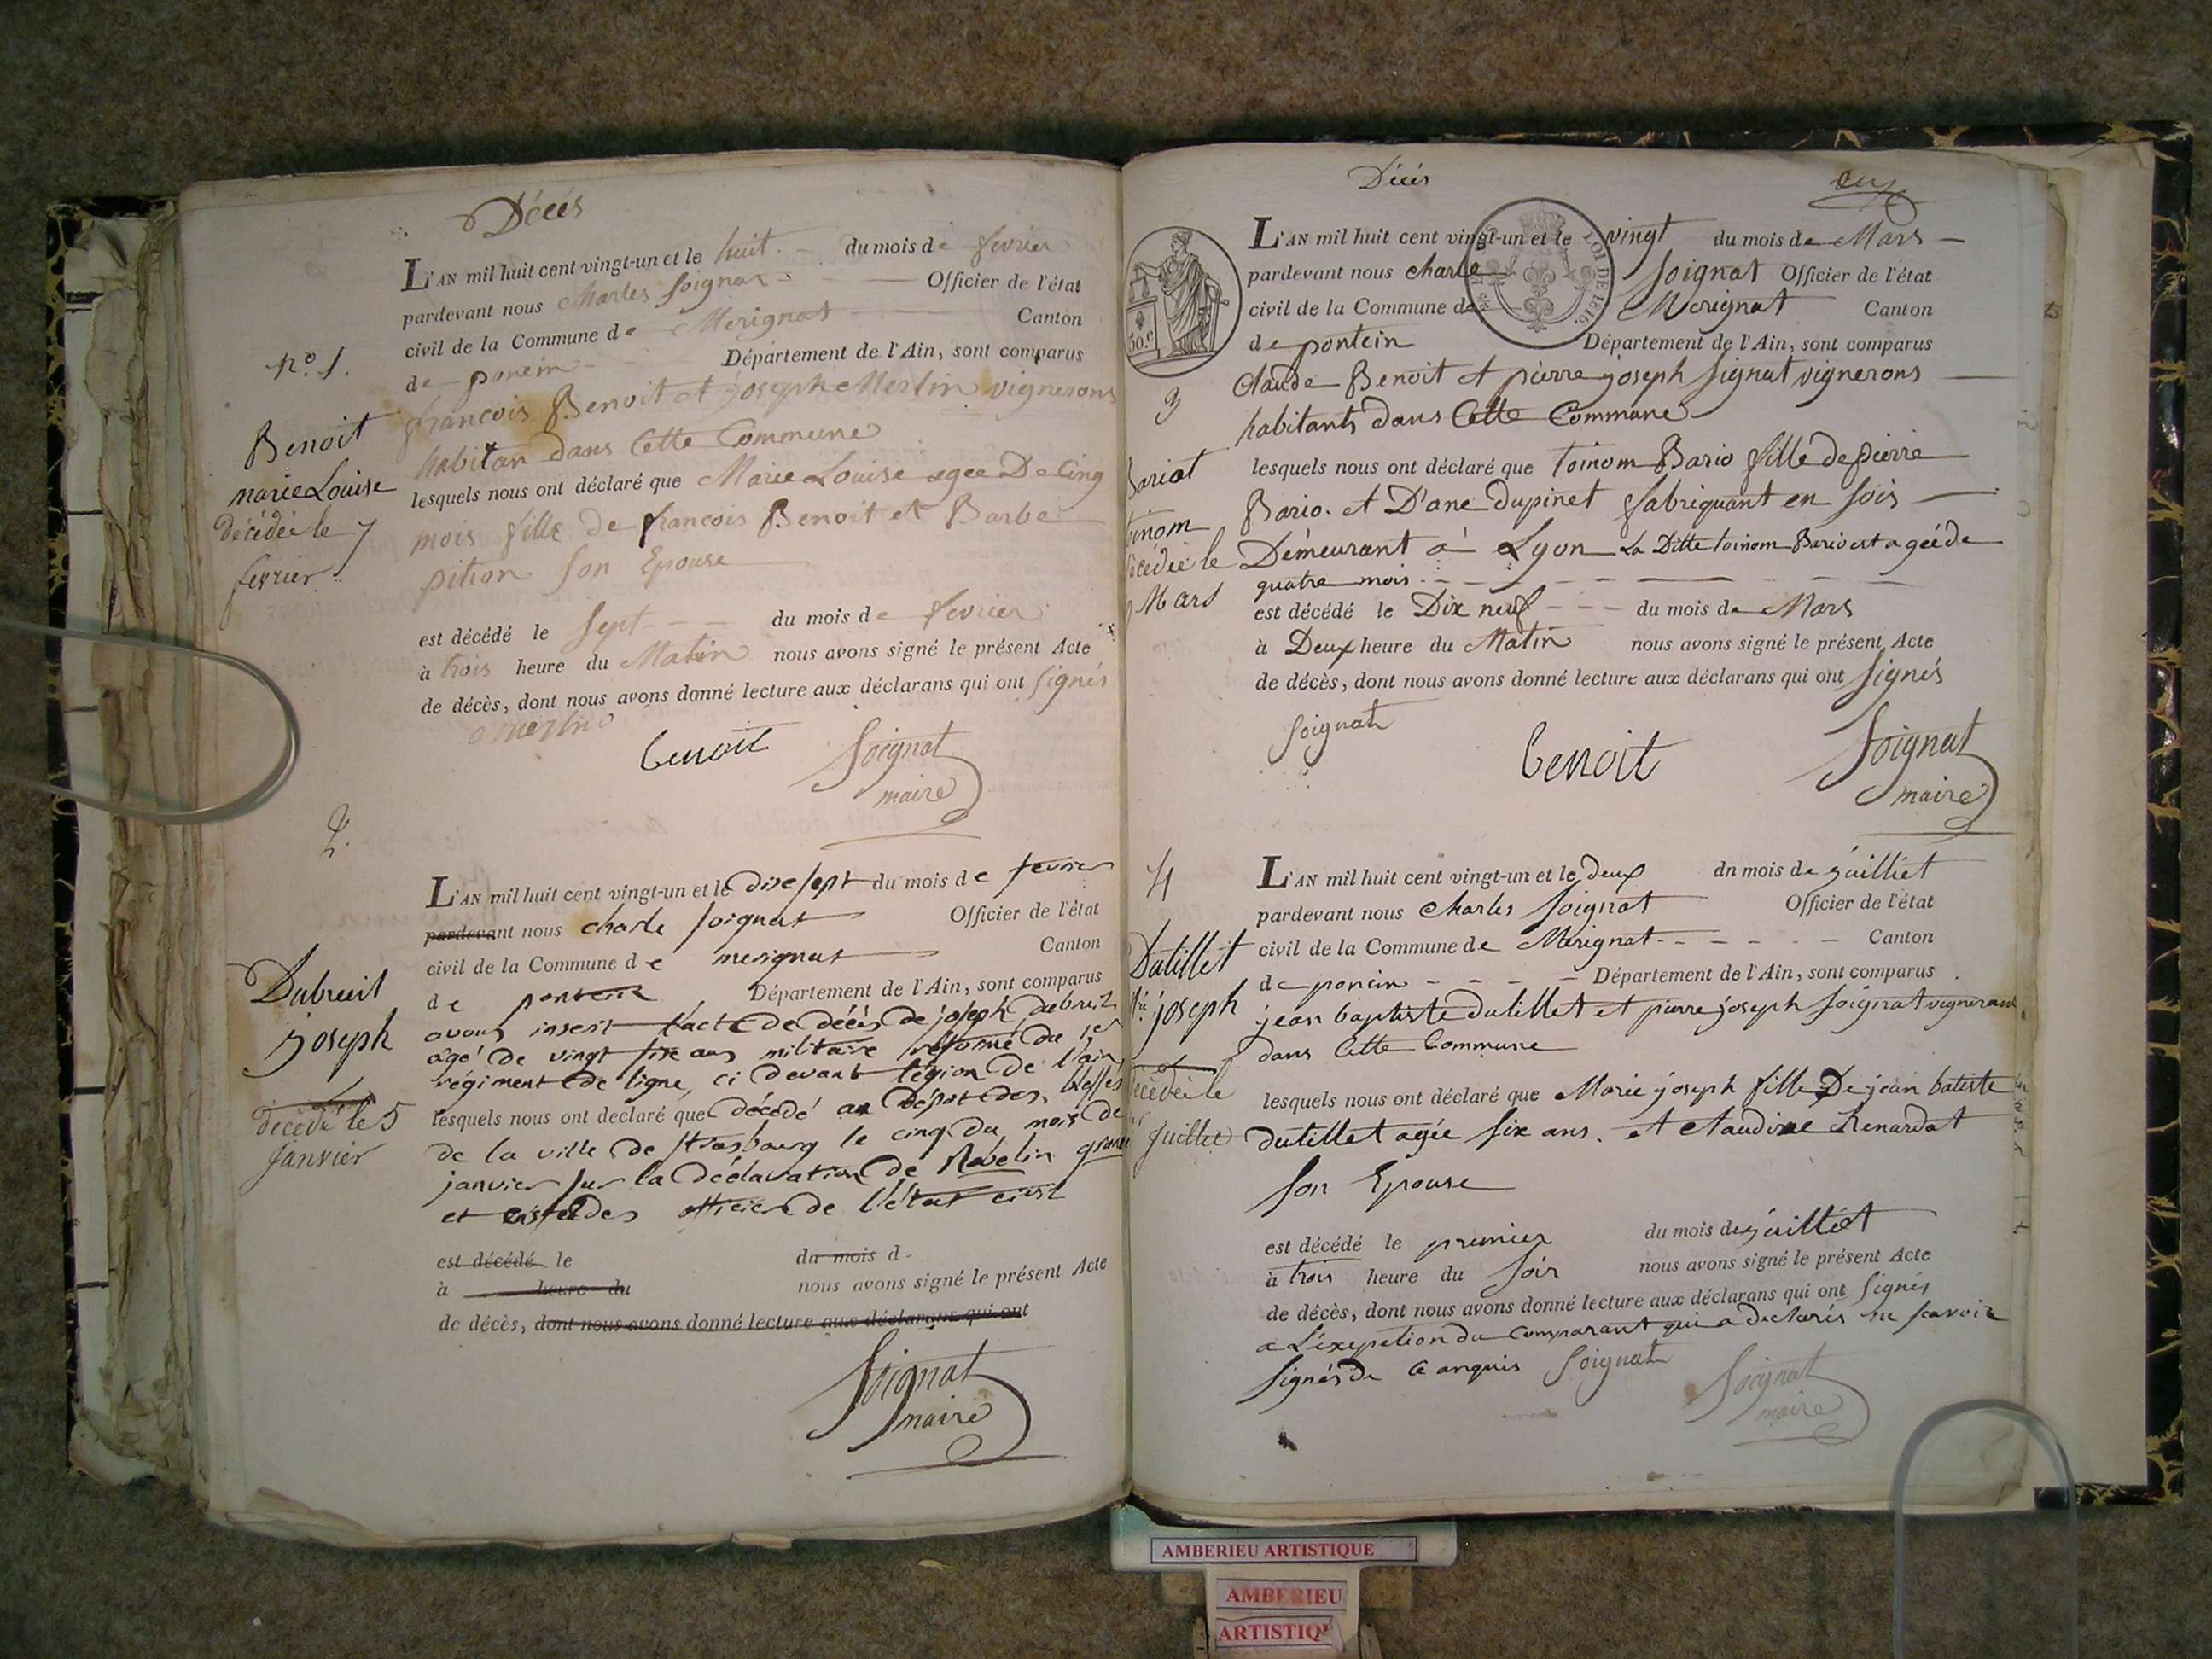 Décés
L'AN mil huit cent vingt-un et le huit du mois de fevrier
pardevant nous Charles Soignat Officier de l'état
civil de la Commune de Merignat Canton
de poncin Département de l'Ain, sont comparus
francois Benoit et joseph Merlin vignerons
habitan dans Cette Commune
lesquels nous ont déclaré que Marie Louise agee De Cinq
mois fille de francois Benoit et Barbe
pition son Epouse
est décédé le sept du mois de fevrier
à trois heure du Matin nous avons signé le présent Acte
de décès, dont nous avons donné lecture aux déclarans qui ont signés
merlin
benoit Soignat
maire
no. 1.
Benoit
marie Louise
décédée le 7
fevrier
2.
L'AN mil huit cent vingt-un et le dixe sept du mois de fevrier
pardevant nous charle soignat Officier de l'état
civil de la Commune de merignat Canton
de pontcin Département de l'Ain, sont comparus
avons inserit l'acte de décès de joseph dubreuil
âgé de vingt six ans militaire réformé du 1er
régiment de ligne, ci devant légion de l'ain
lesquels nous ont declaré que décédé au dépot des blessés
de la ville de strasbourg le cinq du mois de
janvier sur la déclaration de
et officier de l'état civil
est décédé le du mois d
à heure du nous avons signé le présent Acte
de décès, dont nous avons donné lecture aux déclarans qui ont
Soignat
maire
Dubreuil
joseph
décédé le 5
Janvier
Décés
deux
30.c
LOI DE 1816.
L'AN mil huit cent vingt-un et le vingt du mois de Mars
pardevant nous charle Soignat Officier de l'état
civil de la Commune de Merignat Canton
de pontcin Département de l'Ain, sont comparus
Claude Benoit et pierre joseph signat vignerons
habitants dans Cette Commune
lesquels nous ont déclaré que toinom Bario fille de pierre
Bario. et D'ane dupinet fabriquant en sois
Démeurant à Lyon La Ditte toinom Bario est agée de
quatre mois
est décédé le Dix neuf du mois de Mars
à Deux heure du Matin nous avons signé le présent Acte
de décès, dont nous avons donné lecture aux déclarans qui ont signés
Soignat
benoit
Soignat
maire
3
Bariot
toinom
décédée le
Mars
4
L'AN mil huit cent vingt-un et le deux dn mois de juilliet
pardevant nous Charles Soignat Officier de l'état
civil de la Commune de Merignat Canton
de poncin Département de l'Ain, sont comparus
jean baptiste dutillet et pierre joseph Soignat vignerans
dans Cette Commune
lesquels nous ont déclaré que Marie joseph fille De jean batiste
dutillet agée six ans. et Claudine Renardat
son Epouse
est décédé le premier du mois de juilliet
à trois heure du soir nous avons signé le présent Acte
de décès, dont nous avons donné lecture aux déclarans qui ont signés
a L'exepetion du comparant qui a declarés ne scavoir
signés de Ce anquis Soignat
Soignat
maire
Dutillet
joseph
décédée le
Juillet
AMBERIEU ARTISTIQUE
AMBERIEU
ARTISTIQ